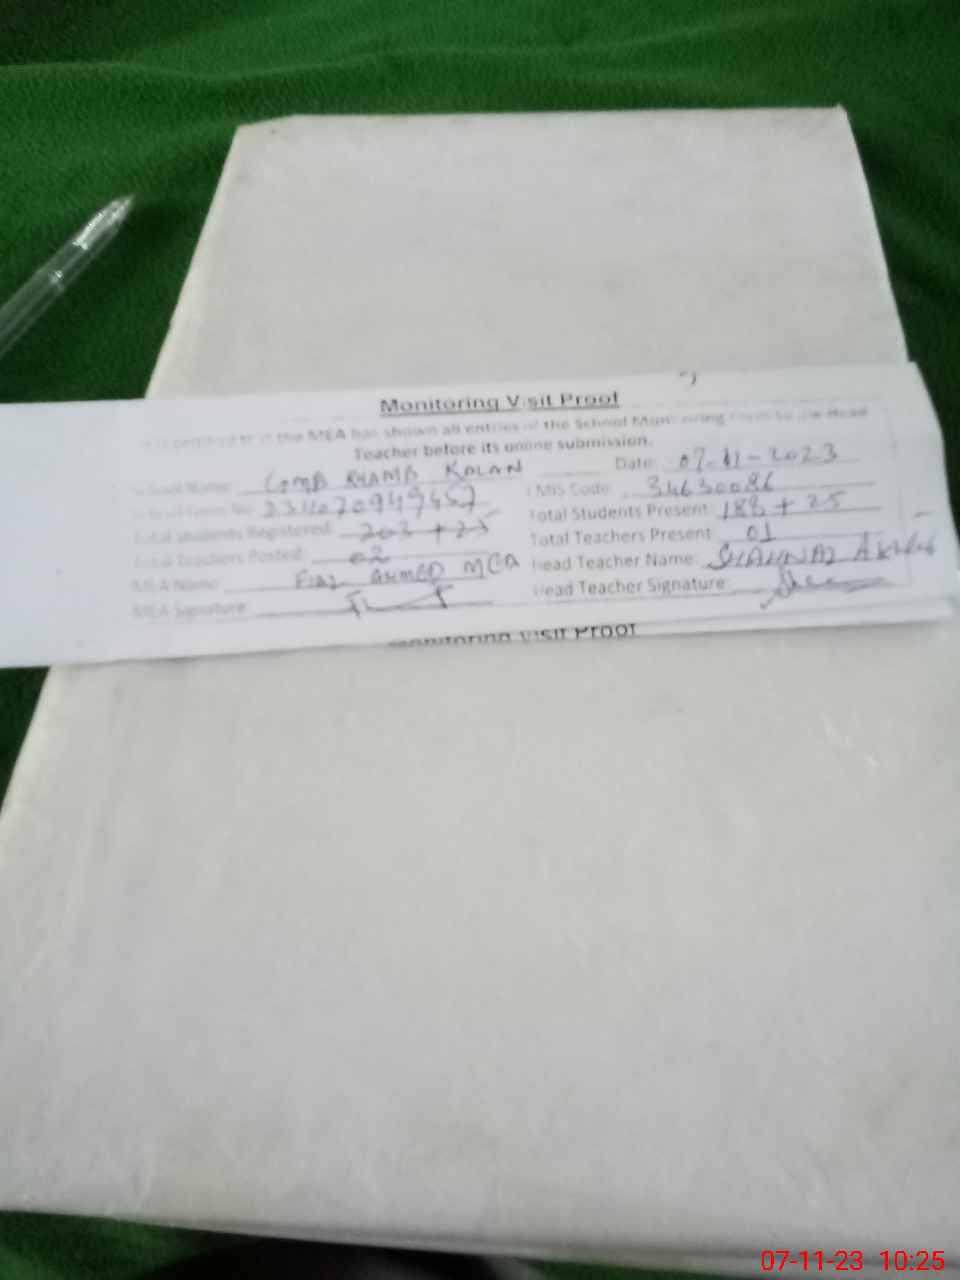 Monitoring Visit Proof
It is certified that the MEA has shown all entries of the School Monitoring Form to the Head
Teacher before its online submission.
School Name: Date: 07-11-2023
School Form No: EMIS Code: 34630086
Total Students Registered: 203 + 25 Total Students Present: 188 + 25
Total Teachers Posted: 02 Total Teachers Present: 01
MEA Name: AHMED MEA Head Teacher Name: SHAHNAZ
MEA Signature: Head Teacher Signature:
Monitoring Visit Proof
07-11-23 10:25